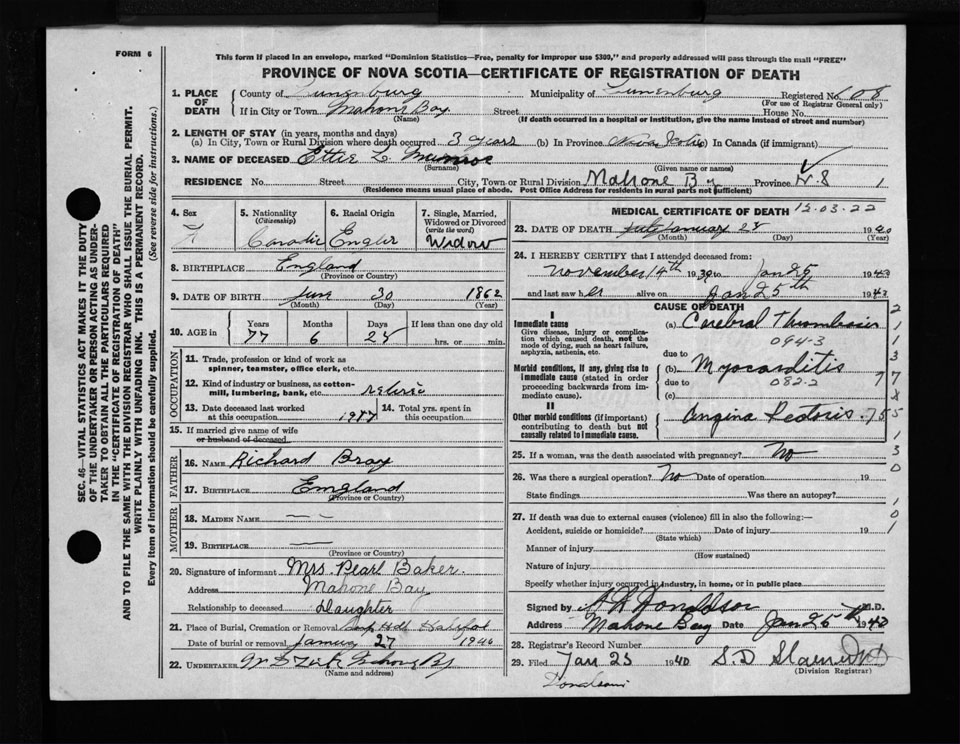 FORM 6
This form if placed in an envelope, marked "Dominion Statistics—Free, penalty for improper use $300," and properly addressed will pass through the mail "FREE"
PROVINCE OF NOVA SCOTIA—CERTIFICATE OF REGISTRATION OF DEATH
SEC. 46—VITAL STATISTICS ACT MAKES IT THE DUTY
OF THE UNDERTAKER OR PERSON ACTING AS UNDER-
TAKER TO OBTAIN ALL THE PARTICULARS REQUIRED
IN THE "CERTIFICATE OF REGISTRATION OF DEATH"
AND TO FILE THE SAME WITH THE DIVISION REGISTRAR WHO SHALL ISSUE THE BURIAL PERMIT.
WRITE PLAINLY WITH UNFADING INK. THIS IS A PERMANENT RECORD.
Every item of information should be carefully supplied. (See reverse side for instructions.)
1. PLACE OF DEATH County of Lunenburg Municipality of Lunenburg Registered No. 108
(For use of Registrar General only)
If in City or Town Mahone Bay Street House No.
(Name) (If death occurred in a hospital or institution, give the name instead of street and number)
2. LENGTH OF STAY (in years, months and days)
(a) In City, Town or Rural Division where death occurred 3 years (b) In Province Nova Scotia (c) In Canada (if immigrant)
3. NAME OF DECEASED Ettie L. Munroe
(Surname) (Given name or names)
RESIDENCE No. Street City, Town or Rural Division Mahone Bay Province N.S 1
(Residence means usual place of abode. Post Office Address for residents in rural parts not sufficient)
4. Sex F
5. Nationality (Citizenship)
6. Racial Origin
7. Single, Married, Widowed or Divorced (write the word) Widow
8. BIRTHPLACE England
(Province or Country)
9. DATE OF BIRTH June 30 1862
(Month) (Day) (Year)
10. AGE in Years Months Days If less than one day old
77 6 25 hrs. or min.
OCCUPATION
11. Trade, profession or kind of work as spinner, teamster, office clerk, etc.
12. Kind of industry or business, as cotton-mill, lumbering, bank, etc.
13. Date deceased last worked at this occupation 14. Total yrs. spent in this occupation
15. If married give name of wife or husband of deceased
FATHER
16. NAME Richard Bray
17. BIRTHPLACE England
(Province or Country)
MOTHER
18. MAIDEN NAME —
19. BIRTHPLACE —
(Province or Country)
20. Signature of informant Mrs. Pearl Baker.
Address Mahone Bay
Relationship to deceased Daughter
21. Place of Burial, Cremation or Removal Halifax
Date of burial or removal 27 1940
22. UNDERTAKER
(Name and address)
MEDICAL CERTIFICATE OF DEATH 15.03.22
23. DATE OF DEATH January 25 1940
(Month) (Day)
24. I HEREBY CERTIFY that I attended deceased from:
November 14th 1939 to Jan 25 1940
and last saw her alive on Jan 25th 1940
CAUSE OF DEATH
I
Immediate cause
Give disease, injury or complication which caused death, not the mode of dying, such as heart failure, asphyxia, asthenia, etc.
(a) Cerebral Thrombosis
094-3
due to
Morbid conditions, if any, giving rise to immediate cause (stated in order proceeding backwards from immediate cause).
(b) Myocarditis
due to 082-2
(c)
II
Other morbid conditions (if important) contributing to death but not causally related to immediate cause.
Angina Pectoris
25. If a woman, was the death associated with pregnancy? No
26. Was there a surgical operation? No Date of operation 19
State findings Was there an autopsy?
27. If death was due to external causes (violence) fill in also the following:—
Accident, suicide or homicide? Date of injury 19
(State which)
Manner of injury
(How sustained)
Nature of injury
Specify whether injury occurred in industry, in home, or in public place
Signed by Donaldson M.D.
Address Mahone Bay Jan 25th 1940
28. Registrar's Record Number
29. Filed Jan 25 1940 S.D
(Division Registrar)